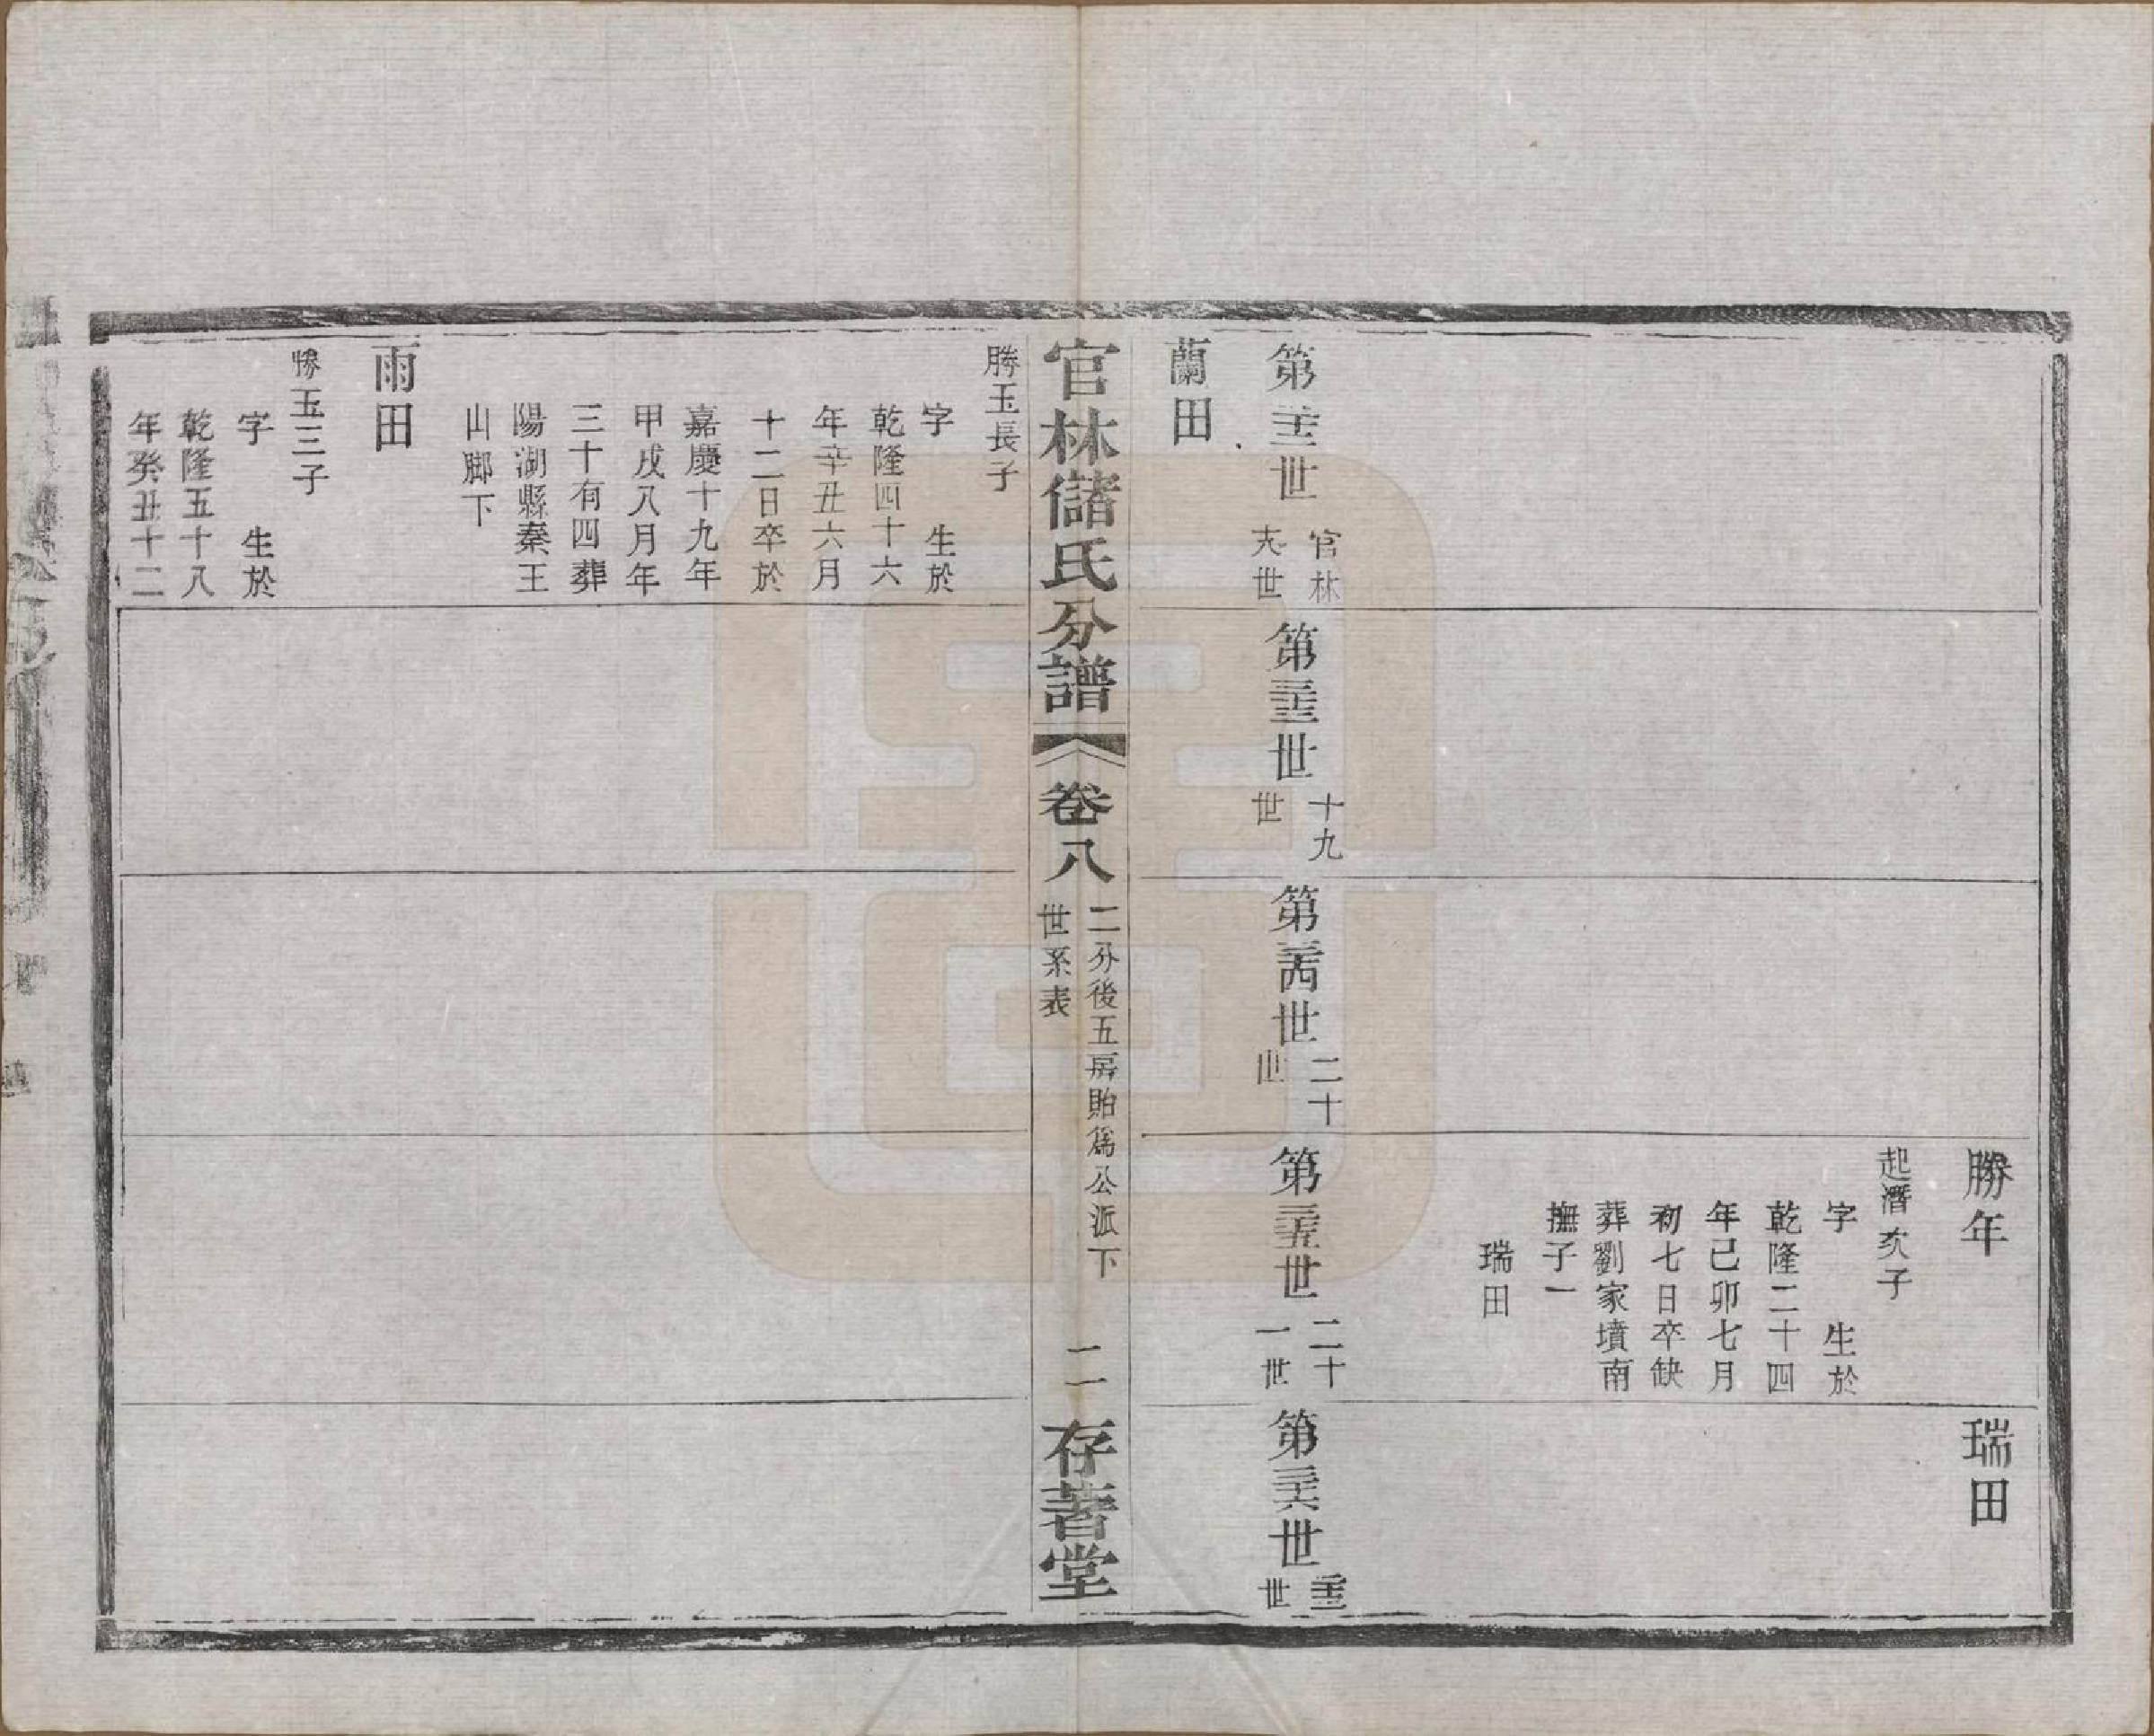 勝年
起潛次子
字　生於
乾隆二十四
年己卯七月
初七日卒缺
葬劉家墳南
撫子一
瑞田
瑞田
第三十二世 官林十八世
第三十三世 十九世
第三十四世 二十世
第三十五世 二十一世
第三十六世 二十二世
蘭田
官林儲氏分譜 卷八 二分後五房貽爲公派下世系表 二 存著堂
勝玉長子
字　生於
乾隆四十六
年辛丑六月
十二日卒於
嘉慶十九年
甲戌八月年
三十有四葬
陽湖縣秦王
山腳下
雨田
勝玉三子
字　生於
乾隆五十八
年癸丑十二